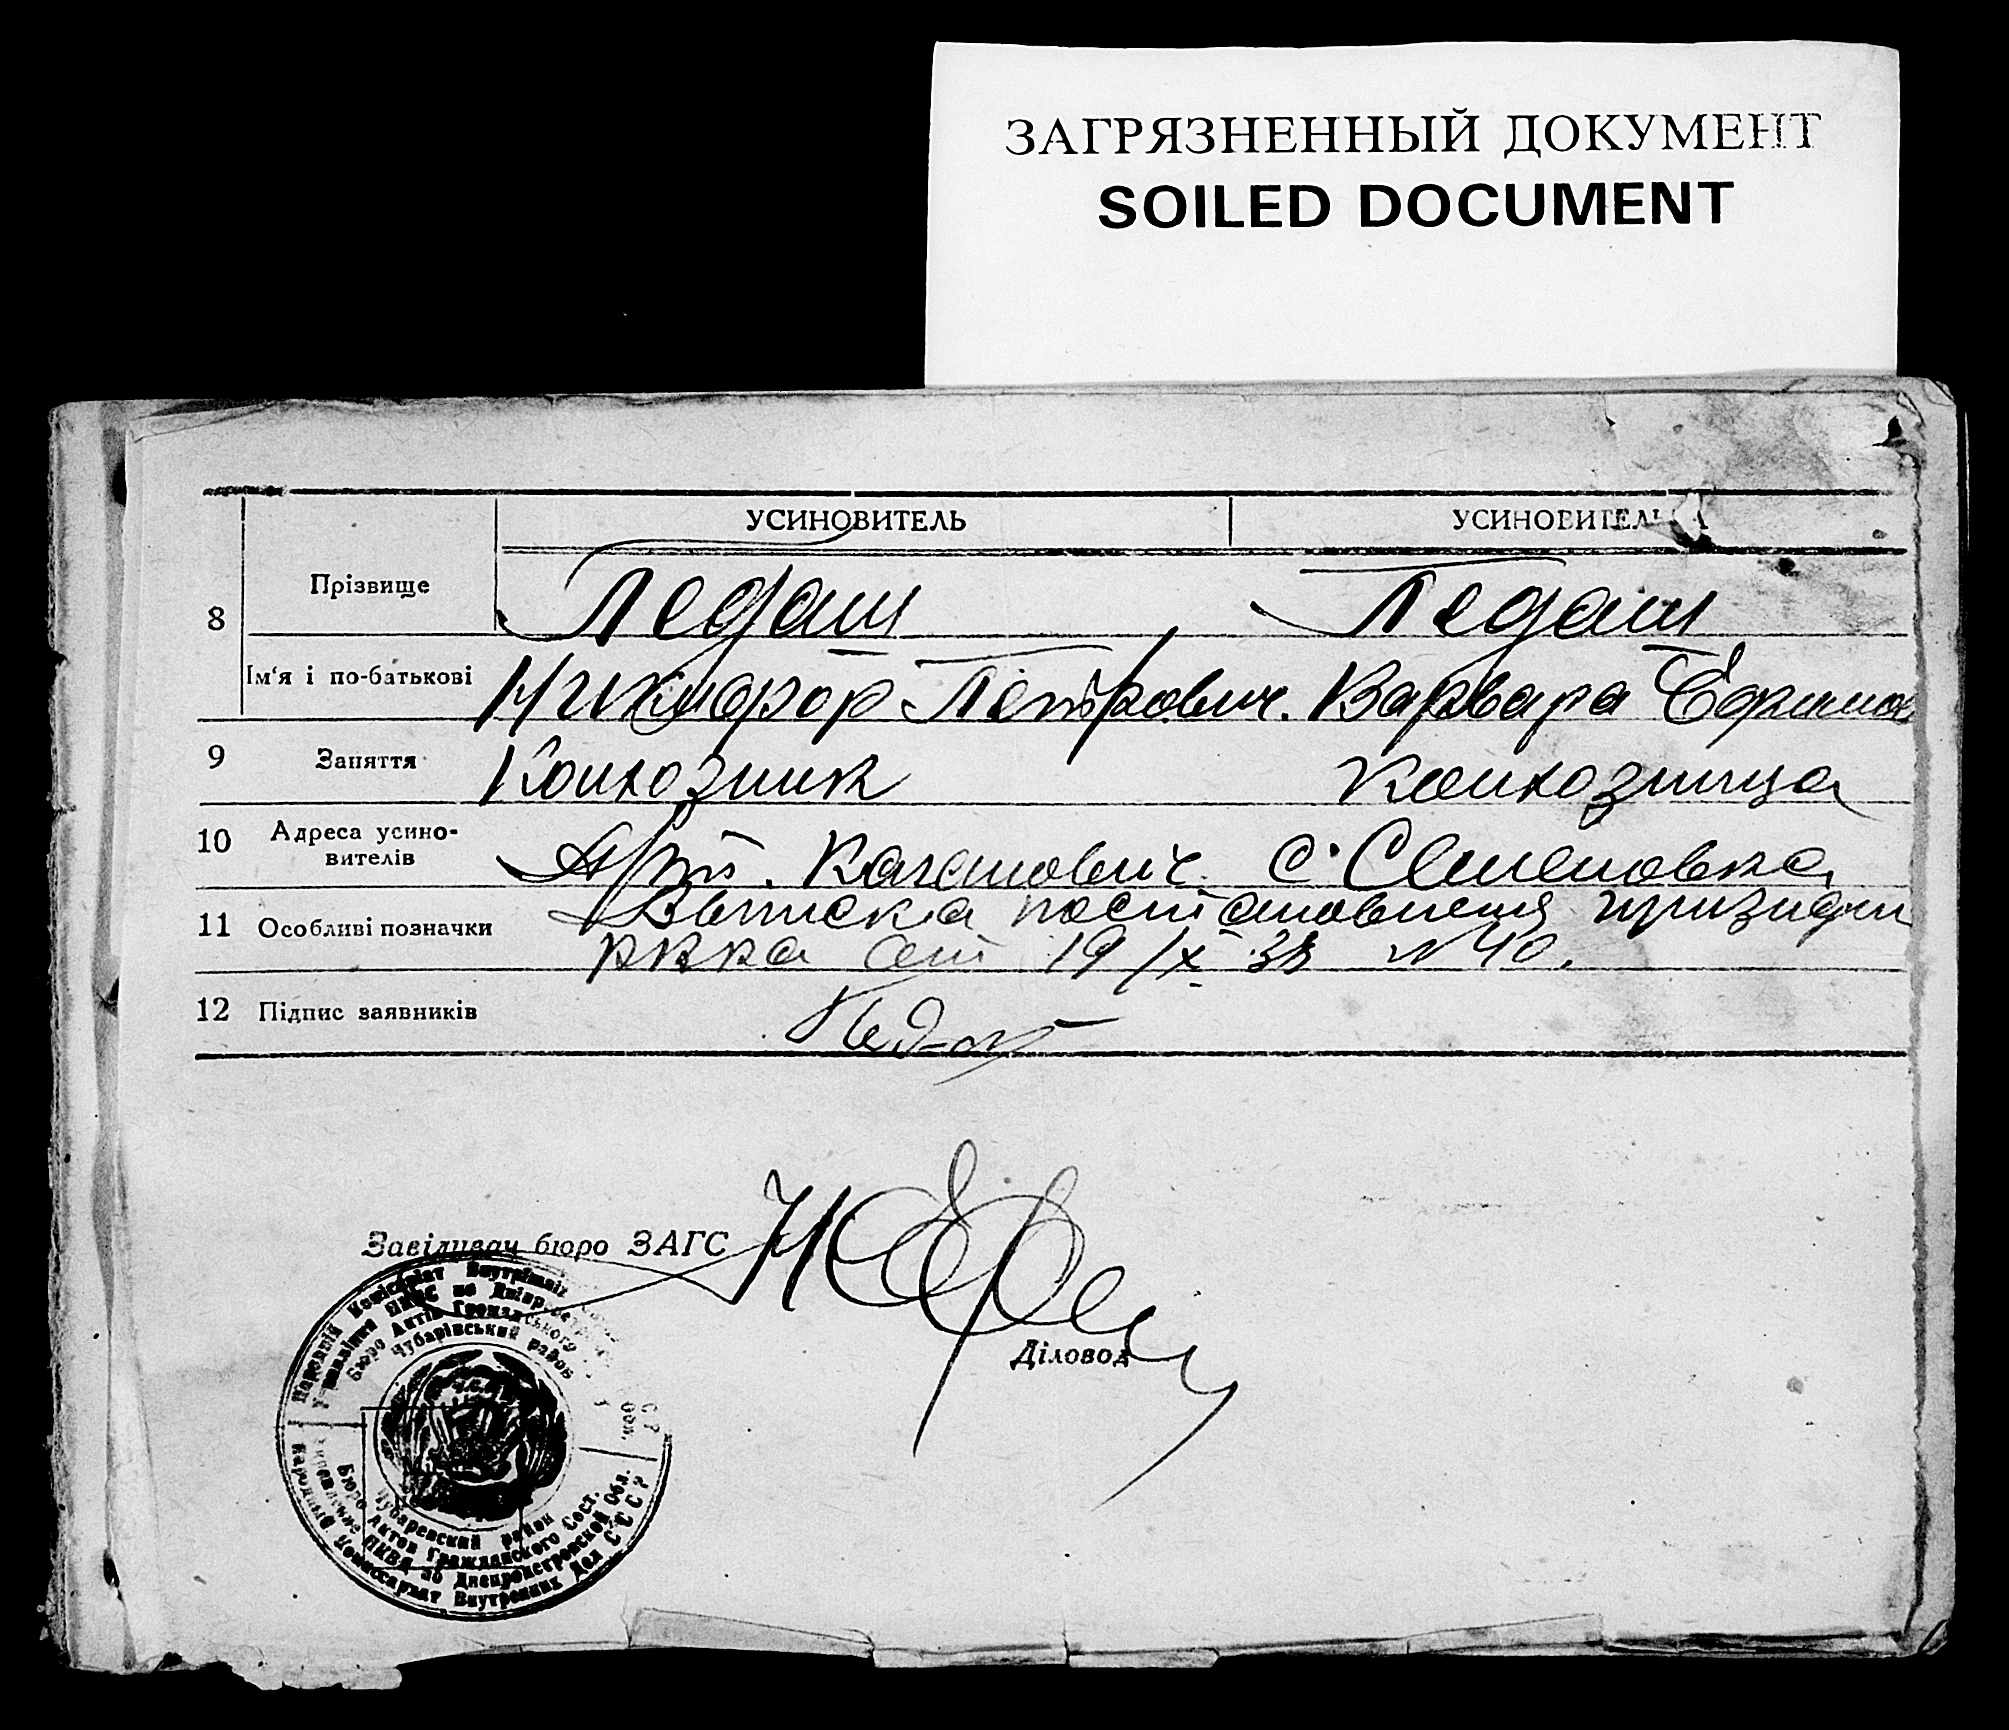 ЗАГРЯЗНЕННЫЙ ДОКУМЕНТ
SOILED DOCUMENT
УСИНОВИТЕЛЬ УСИНОВИТЕЛЬКА
8 Прізвище Педаш Педаш
Ім'я і по-батькові Никифор Петрович. Варвара Ефимов
9 Заняття Колхозник Колхозница
10 Адреса усино-
вителів Арт. Каганович. с. Семеновка
11 Особливі позначки Выписка постановления призиди
РККА от 19/IX 38 N 40.
12 Підпис заявників
Завідувач бюро ЗАГС
Діловод
Народній Комісаріат Внутрішніх
Управління НКВС по Дніпропетр
Бюро Актів Громадського
Чубарівський район
Чубаревский район
Бюро Актов Гражданского Сост.
Управление НКВД по Днепропетровской Обл.
Народный Комиссариат Внутренних Дел СССР